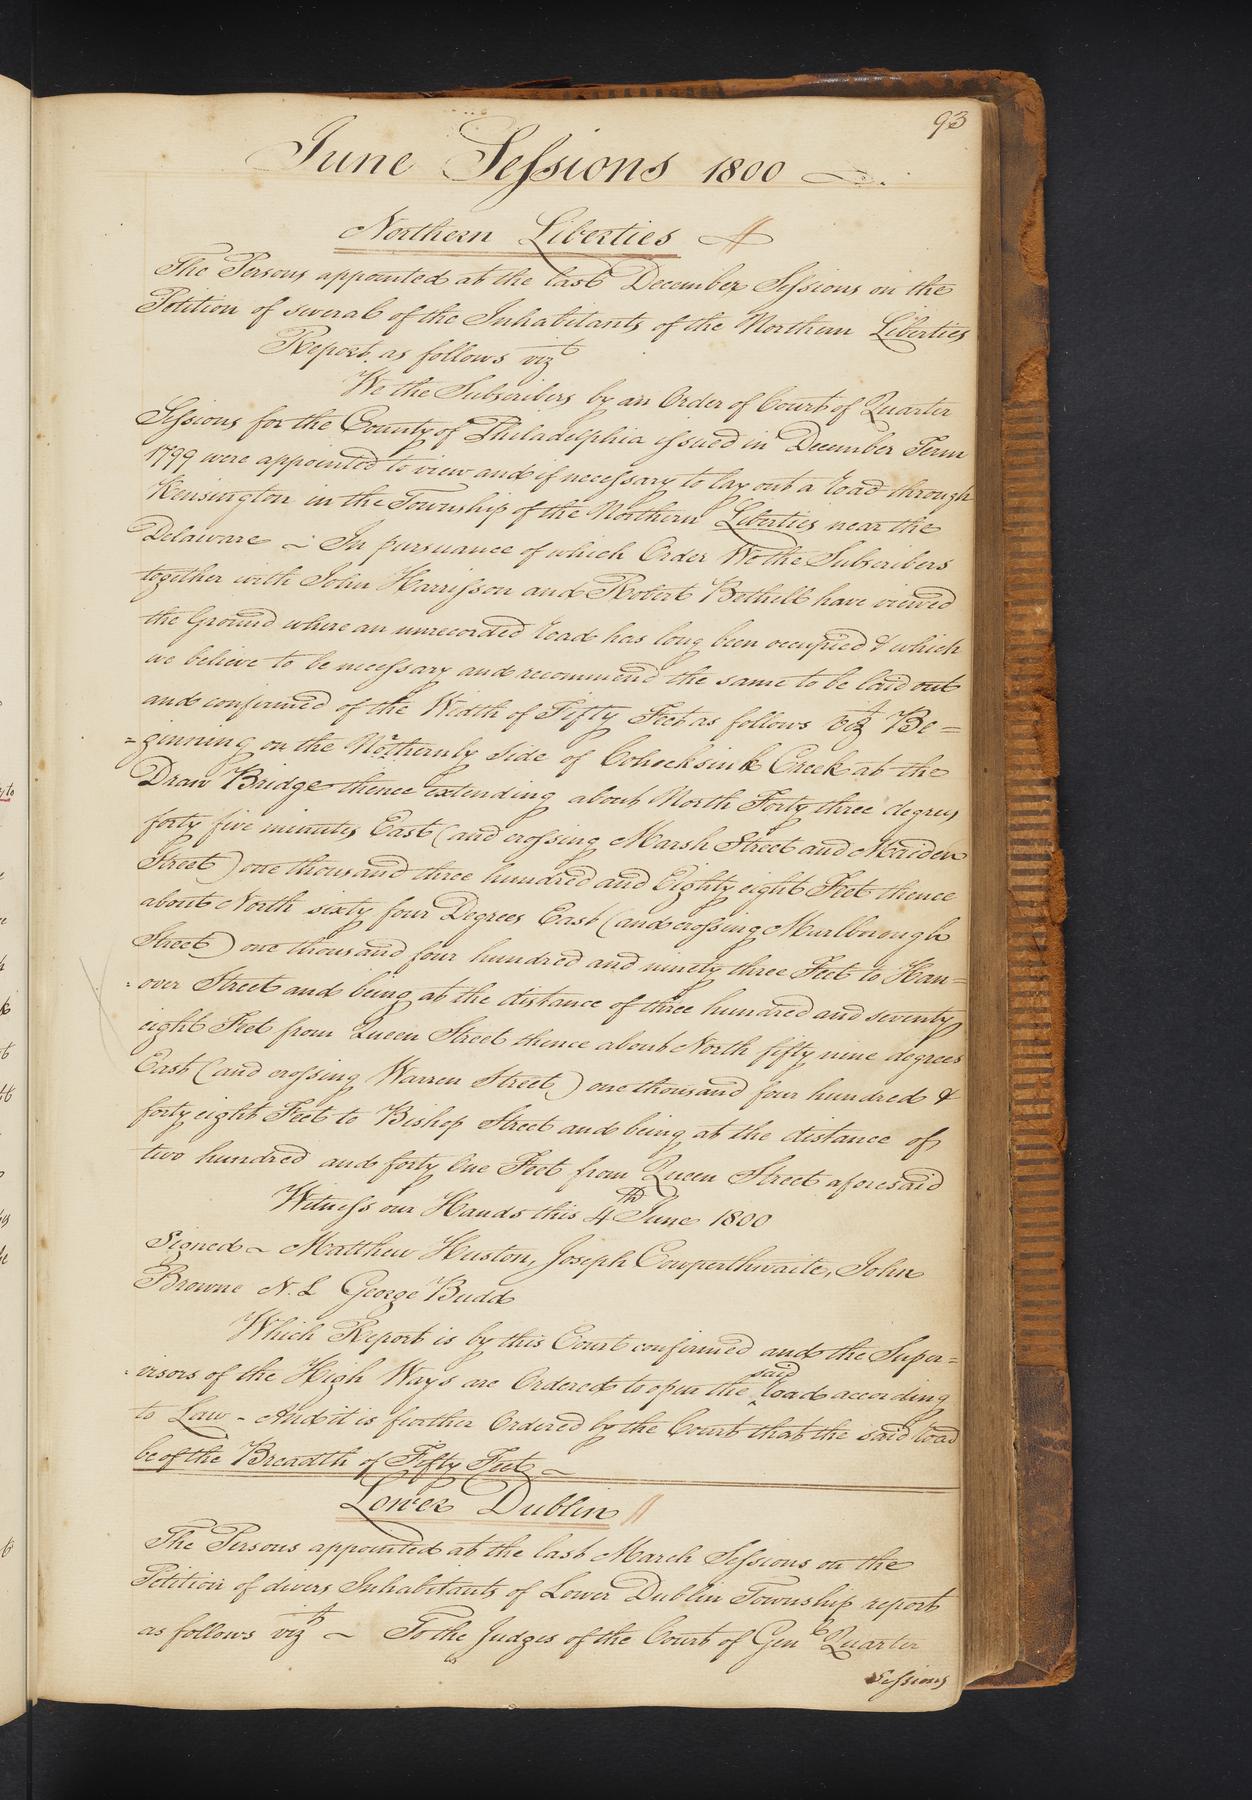 93
June Sessions 1800
Northern Liberties
The Persons appointed at the last December Sessions on the
Petition of several of the Inhabitants of the Northern Liberties
Report as follows vizt
We the Subscribers by an Order of Court of Quarter
Sessions for the County of Philadelphia issued in December Term
1799 were appointed to view and if necessary to lay out a road through
Kensington in the Township of the Northern Liberties near the
Delaware ~ In pursuance of which Order We the Subscribers
together with John Harrisson and Robert Bethell have viewed
the Ground where an unrecorded road has long been occupied & which
we believe to be necessary and recommend the same to be laid out
and confirmed of the Width of Fifty Feet as follows vizt Be=
=ginning on the Northernly side of Cohocksink Creek at the
Draw Bridge thence extending about North Forty three degrees
forty five minutes East (and crossing Marsh Street and Maiden
Street) one thousand three hundred and Eighty eight Feet thence
about North sixty four Degrees East (and crossing Marlborough
Street) one thousand four hundred and ninety three Feet to Han=
=over Street and being at the distance of three hundred and seventy
eight Feet from Queen Street thence about North fifty nine degrees
East (and crossing Warren Street) one thousand four hundred &
forty eight Feet to Bishop Street and being at the distance of
two hundred and forty One Feet from Queen Street aforesaid
Witness our Hands this 4th June 1800
Signed ~ Matthew Huston, Joseph Cowperthwaite, John
Browne N. L George Budd
Which Report is by this Court confirmed and the Super=
=visors of the High Ways are Ordered to open the said road according
to Law - And it is further Ordered by the Court that the said road
be of the Breadth of Fifty Feet ~
Lower Dublin
The Persons appointed at the last March Sessions on the
Petition of divers Inhabitants of Lower Dublin Township report
as follows vizt ~ To the Judges of the Court of Genl Quarter
Sessions